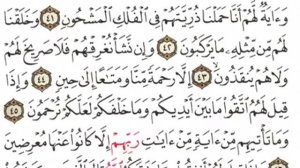 وَءَايَةٌ لَّهُمْ أَنَّا حَمَلْنَا ذُرِّيَّتَهُمْ فِي الْفُلْكِ الْمَشْحُونِ ٤١ وَخَلَقْنَا
لَهُم مِّن مِّثْلِهِۦ مَا يَرْكَبُونَ ٤٢ وَإِن نَّشَأْ نُغْرِقْهُمْ فَلَا صَرِيخَ لَهُمْ
وَلَا هُمْ يُنقَذُونَ ٤٣ إِلَّا رَحْمَةً مِّنَّا وَمَتَٰعًا إِلَىٰ حِينٍ ٤٤ وَإِذَا
قِيلَ لَهُمُ اتَّقُوا مَا بَيْنَ أَيْدِيكُمْ وَمَا خَلْفَكُمْ لَعَلَّكُمْ تُرْحَمُونَ ٤٥
وَمَا تَأْتِيهِم مِّنْ ءَايَةٍ مِّنْ ءَايَٰتِ رَبِّهِمْ إِلَّا كَانُوا عَنْهَا مُعْرِضِينَ